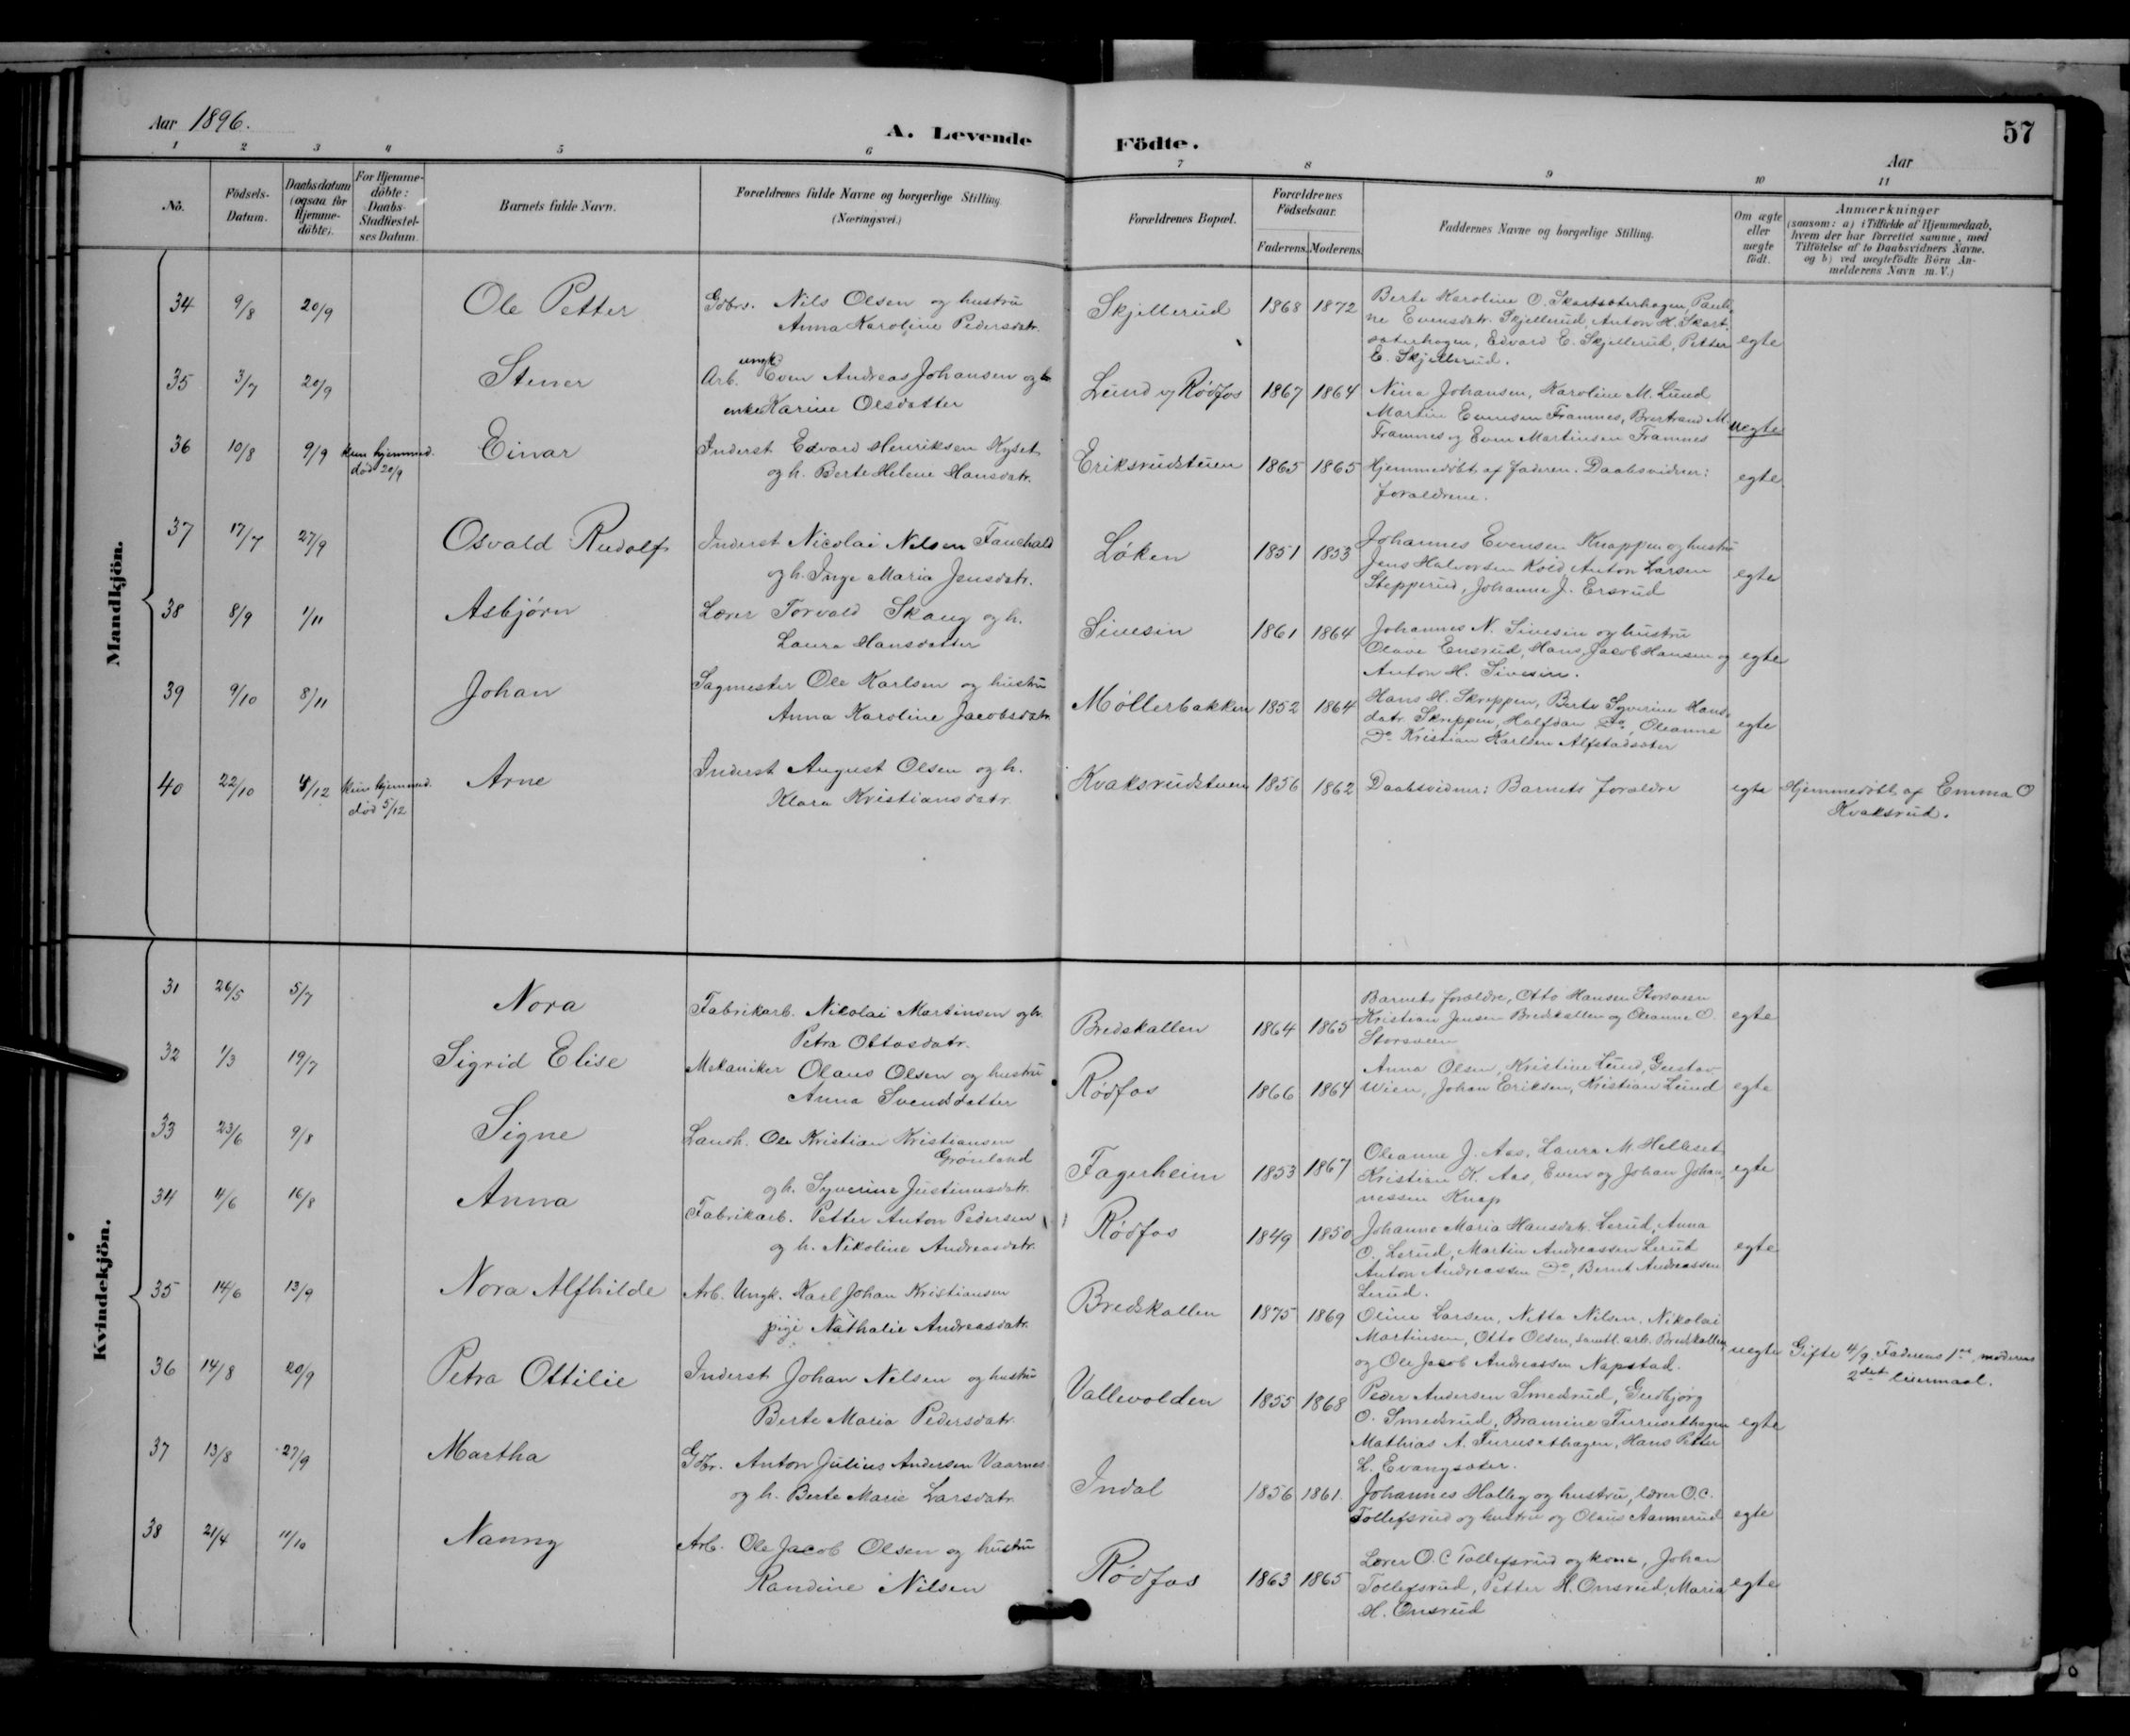 Aar 1896.
A. Levende Födte.
57
Aar
1 2 3 4 5 6 7 8 9 10 11
No.
Födsels-Datum.
Daabsdatum (ogsaa for Hjemme-döbte).
For Hjemme-döbte: Daabs-Stadfæstel-ses Datum.
Barnets fulde Navn.
Forældrenes fulde Navne og borgerlige Stilling. (Næringsvei.)
Forældrenes Bopæl.
Forældrenes Födselsaar.
Faderens. Moderens.
Faddernes Navne og borgerlige Stilling.
Om ægte eller uægte födt.
Anmærkninger
(saasom: a) i Tilfælde af Hjemmedaab,
hvem der har forrettet samme, med
Tilföielse af to Daabsvidners Navne,
og b) ved uægtefödte Börn An-
melderens Navn m. V.)
Mandkjön.
34 9/8 20/9 Ole Petter Gdbrs. Nils Olsen og hustru Skjellerud 1868 1872 Berte Karoline O. Skartsæterhagen, Pauli-
Anna Karoline Pedersdatr. ne Evensdatr. Skjellerud, Anton H. Skart-
sæterhagen, Edvard E. Skjellerud, Petter egte
E. Skjellerud.
35 3/7 20/9 Stener Arb. ungk. Even Andreas Johansen og Lund og Rødfos 1867 1864 Nina Johansen, Karoline M. Lund
enke Karine Olsdatter Martin Evensen Framnes, Bertrand M. uegte
Framnes og Even Martinsen Framnes
36 10/8 9/9 kun hjemmed. Einar Inderst Edvard Henriksen Kyset Eriksrudstuen 1865 1865 Hjemmedøbt af faderen. Daabsvidner: egte
død 20/9 og h. Berte Helene Hansdatr. forældrene.
37 17/7 27/9 Osvald Rudolf Inderst Nicolai Nilsen Fauchald Løken 1851 1853 Johannes Evensen Knappen og hustru
og h. Inge Maria Jensdatr. Jens Halvorsen Kold Anton Larsen egte
Stepperud, Johanne J. Ersrud
38 8/9 1/11 Asbjørn Lærer Torvald Skaug og h. Sivesin 1861 1864 Johannes N. Sivesin og hustru
Laura Hansdatter Olave Ensrud, Hans Jacob Hansen og egte
Anton H. Sivesin.
39 9/10 8/11 Johan Sagmester Ole Karlsen og hustru Møllerbakken 1852 1864 Hans H. Skreppen, Berte Syverine Hans-
Anna Karoline Jacobsdatr. datr. Skreppen, Halfdan Do, Oleanne egte
Do Kristian Karlsen Alfstadsæter
40 22/10 4/12 kun hjemmed. Arne Inderst August Olsen og h. Kvaksrudstuen 1856 1862 Daabsvidner: Barnets forældre egte Hjemmedøbt af Emma O
død 5/12 Klara Kristiansdatr. Kvaksrud.
Kvindekjön.
31 26/5 5/7 Nora Fabrikarb. Nikolai Martinsen og h. Bredskallen 1864 1865 Barnets forældre, Otto Hansen Storsveen egte
Petra Ottosdatr. Kristian Jensen Bredskallen og Oleanne O.
Storsveen
32 1/3 19/7 Sigrid Elise Mekaniker Olaus Olsen og hustru Rødfos 1866 1864 Anna Olsen, Kristine Lund, Gustav
Anna Svendsdatter Wien, Johan Eriksen, Kristian Lund egte
33 23/6 9/8 Signe Landh. Ole Kristian Kristiansen Fagerheim 1853 1867 Oleanne J. Aas, Laura M. Helleset
Grønland Kristian K. Aas, Even og Johan Johan- egte
og h. Syverine Justinusdatr. nessen Knap
34 4/6 16/8 Anna Fabrikarb. Petter Anton Pedersen Rødfos 1849 1850 Johanne Maria Hansdatr. Lerud, Anna
og h. Nikoline Andreasdatr. O. Lerud, Martin Andreassen Lerud egte
Anton Andreassen Do, Bernt Andreassen
Lerud.
35 14/6 13/9 Nora Alfhilde Arb. Ungk. Karl Johan Kristiansen Bredskallen 1875 1869 Oline Larsen, Netta Nilsen, Nikolai
pige Nathalie Andreasdatr. Martinsen, Otto Olsen, samtl. arb. Bredskallen uegte Gifte 4/9. Faderens 1ste, moderens
og Ole Jacob Andreassen Napstad. 2det leiermaal.
36 14/8 20/9 Petra Ottilie Inderst Johan Nilsen og hustru Vallevolden 1855 1868 Peder Andersen Smedsrud, Gudbjørg
Berte Maria Pedersdatr. O. Smedsrud, Bramine Furusethagen egte
Mathias A. Furusethagen, Hans Petter
L. Evangsæter.
37 13/8 27/9 Martha Gdbr. Anton Julius Andersen Vaarnes Indal 1856 1861. Johannes Halley og hustru, lærer O.C.
og h. Berte Marie Larsdatr. Tollefsrud og hustru og Olaus Aannerud egte
38 21/4 11/10 Nanny Arb. Ole Jacob Olsen og hustru Rødfos 1863 1865 Lærer O.C Tollefsrud og kone, Johan
Randine Nilsen Tollefsrud, Petter H. Onsrud, Maria egte
H. Onsrud